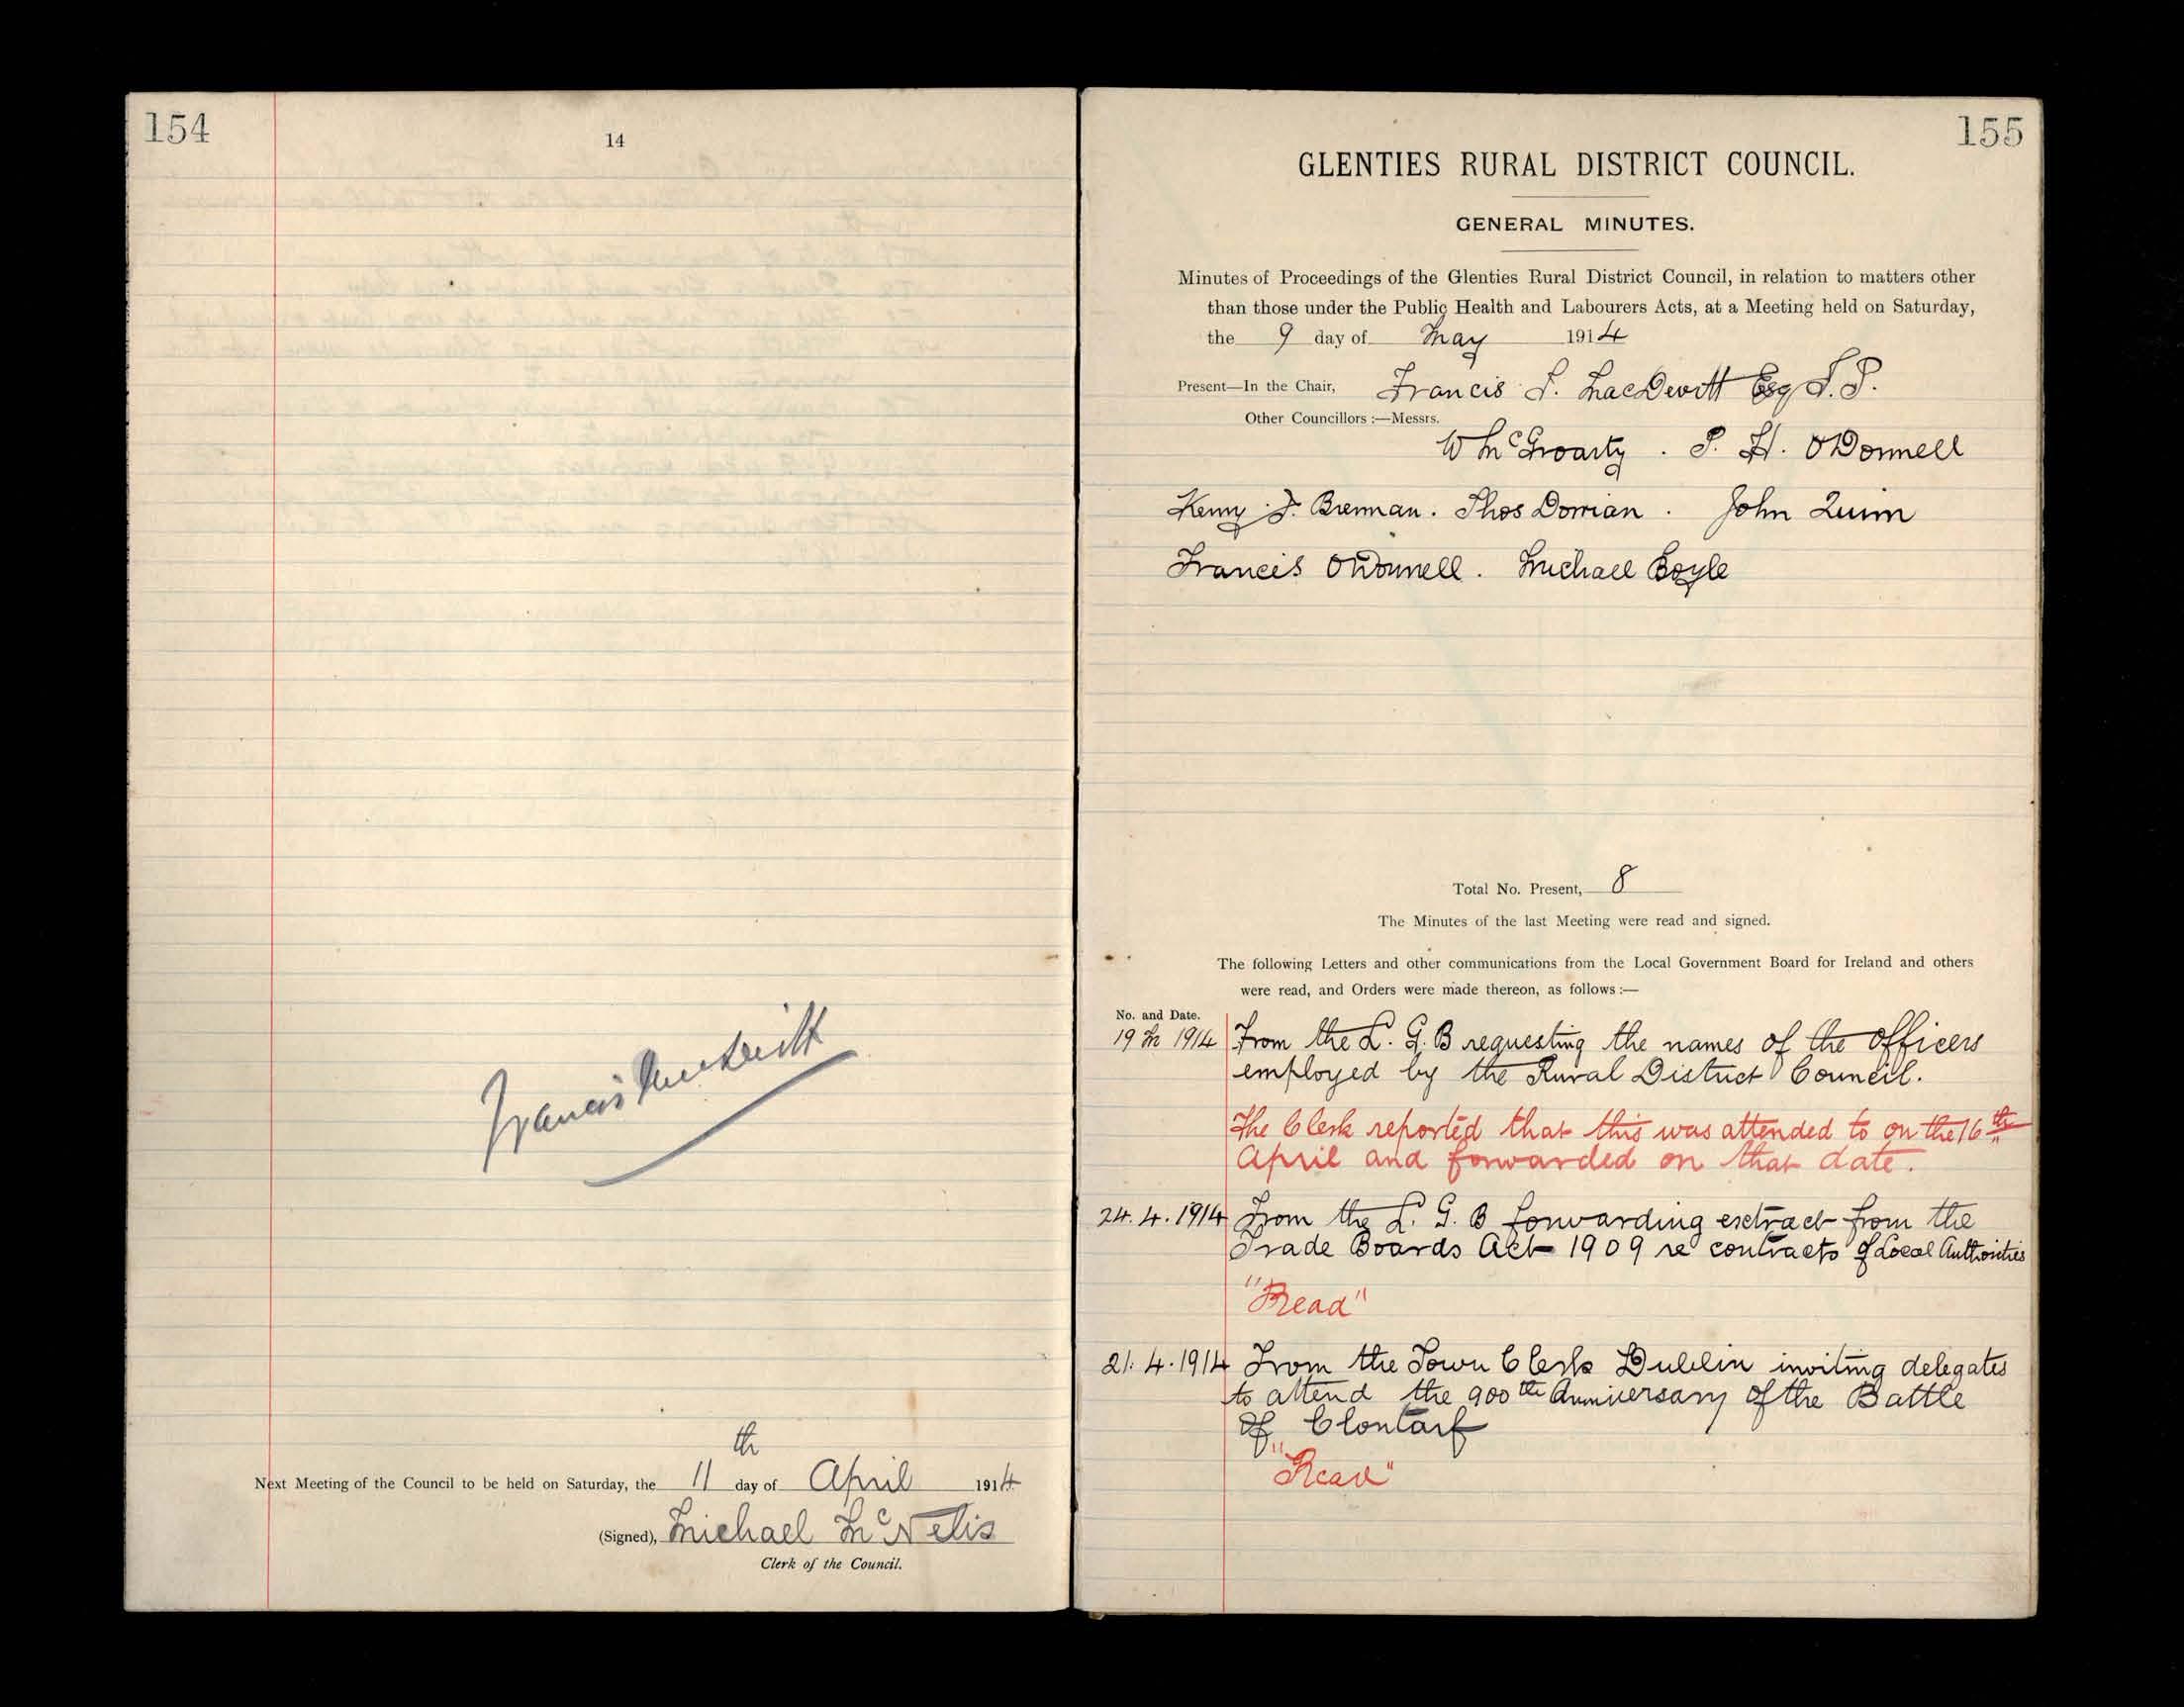 154
14
Francis MacDevitt
Next Meeting of the Council to be held on Saturday, the 11th day of April 1914
(Signed), Michael McNelis
Clerk of the Council.
155
GLENTIES RURAL DISTRICT COUNCIL.
GENERAL MINUTES.
Minutes of Proceedings of the Glenties Rural District Council, in relation to matters other
than those under the Public Health and Labourers Acts, at a Meeting held on Saturday,
the 9 day of May 1914
Present—In the Chair, Francis J. MacDevitt Esq J.P.
Other Councillors :—Messrs.
W McGroarty . P. H. O'Donnell
Kenny J. Brennan . Thos Dorrian . John Quinn
Francis O'Donnell . Michael Boyle
Total No. Present, 8
The Minutes of the last Meeting were read and signed.
The following Letters and other communications from the Local Government Board for Ireland and others
were read, and Orders were made thereon, as follows :—
No. and Date.
19 M 1914 From the L. G. B requesting the names of the officers
employed by the Rural District Council.
The Clerk reported that this was attended to on the 16th
April and forwarded on that date.
24.4.1914 From the L. G. B forwarding extract from the
Trade Boards Act 1909 re contracts of Local Authorities
"Read"
21.4.1914 From the Town Clerk Dublin inviting delegates
to attend the 900th Anniversary of the Battle
of Clontarf
"Read"